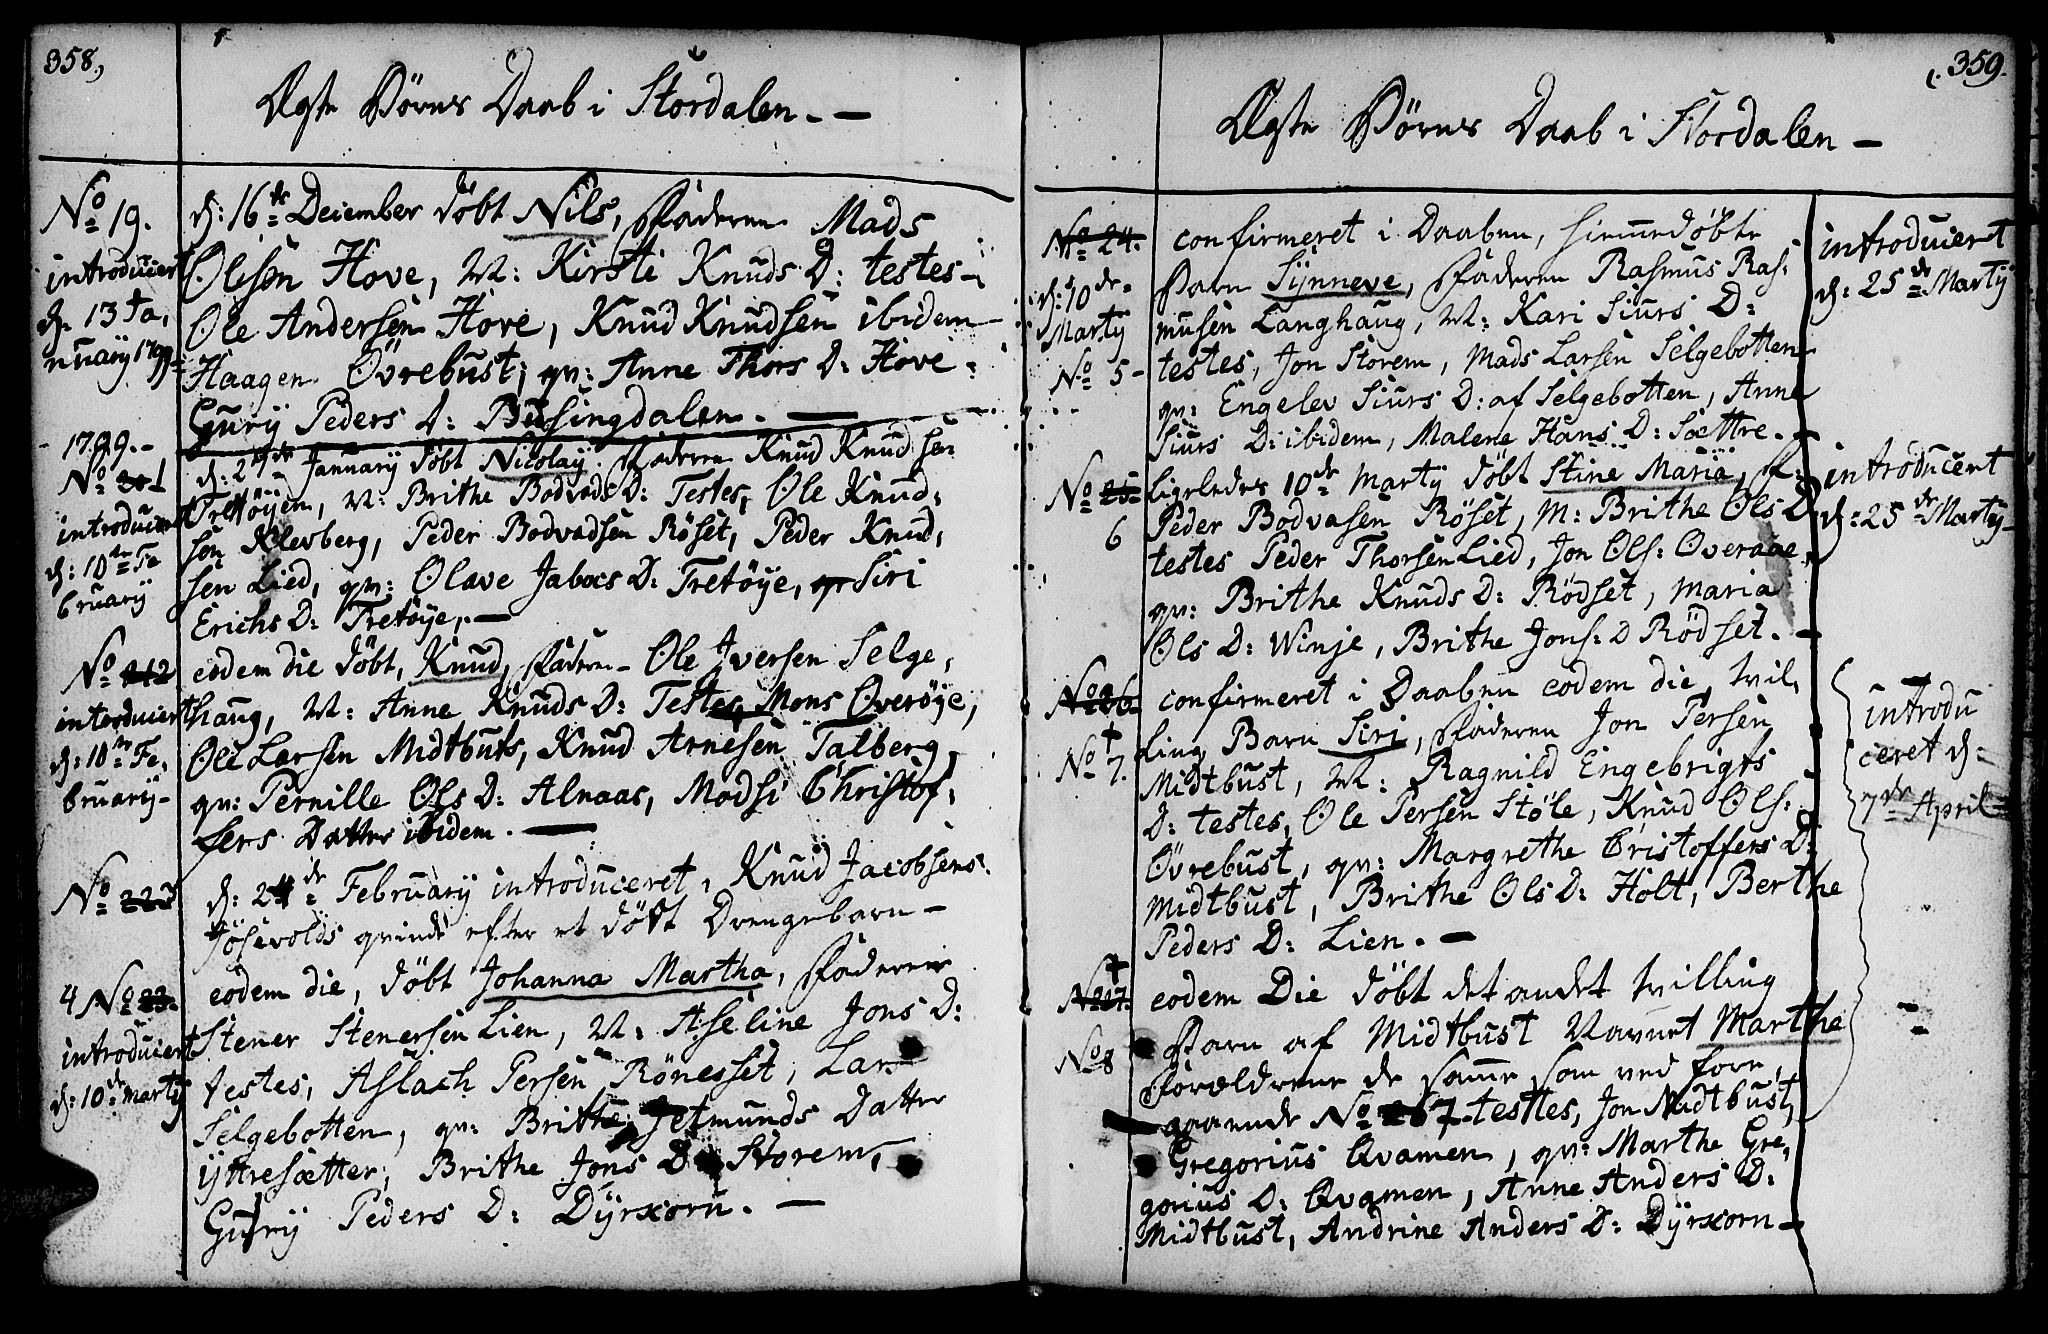 358,
Ægte Børns Daab i Stordalen. —
No 19.
introduciert
d: 13 Ja,
nuarÿ 1799
d: 16de Deiember döbt Nils, Faderen Mads
Olesen Hove, M: Kirsti Knuds D: testes
Ole Andersen Hove, Knud Knudsen ibidem
Haagen Övrebust; qv: Anne Thors D: Hove
Gurÿ Peders D: Bussingdalen. —
1799. -
No 1
introduciert
d: 10de Fe
bruarÿ
Januarÿ döbt Nicolaÿ. Faderen Knud Knudsen
Tretöÿen, M: Brithe Bodvads D: Testes, Ole Knud,
sen Klevberg, Peder Bodvadsen Röset, Peder Knud,
sen Lied, qv: Olave Jabocs D: Tretöÿe, Siri
Erichs D: Tretöÿe, —
No 2
introduciert
d: 10de Fe,
bruarÿ -
eodem die döbt, Knud, Faderen Ole Iversen Selge,
haug, M: Anne Knuds D: Testes, Mons Överöÿe,
Ole Larsen Midtbuts, Knud Arnesen Talberg,
qv: Pernille Ols D: Alnaas, Madsi Christof,
fers Datter ibidem. —
No 3
d: 24de Februarÿ introduceret, Knud Jacobsens
Jösevolds qvinde efter et dödt Drengebarn —
4 No 23.
introduciert
d: 10de Martÿ
eodem die, döbt Johanna Martha, Faderen
Stener Stenersen Lien, M: Aseline Jons D:
testes, Aslach Persen Rönesset, Lars
Selgebotten, qv: Brithe Jetmunds Datter
ÿttresætter, Brithe Jons D: Storem,
Gurÿ Peders D: Dÿrxorn. —
359.
Ægte Børns Daab i Stordalen —
No 24.
d: 10de
Martÿ
No 5
confirmeret i Daaben, hiemmedöbte
Barn Sÿnneve, Faderen Rasmus Ras,
musen Langhaug, M: Kari Siurs D:
testes, Jon Storem, Mads Larsen Selgebotten
qv: Engelev Siurs D: af Selgebotten, Anne
Siurs D: ibidem, Malene Hans D: Sættre. —
introduciert
d: 25de Martÿ
No 25
6
ligeledes 10de Martÿ döbt Stine Maria, F:
Peder Bodvasen Röset, M: Brithe Ols D
testes Peder Thorsen Lied, Jon Ols: Overaae,
qv: Brithe Knuds D: Rödset, Maria
Ols D: Winje, Brithe Jons: D Rödset. —
introducert
d: 25de Martÿ
No 26.
†
No 7.
confirmeret i Daaben eodem die, tvil,
ling Barn Siri, Faderen Jon Persen
Midtbust, M: Ragnild Engebrigts
D: testes, Ole Persen Stöle, Knud Ols:
Övrebust, qv: Margrethe Cristoffers D:
Midtbust, Brithe Ols D: Holt, Berthe
Peders D: Lien. —
introdu
ceret d:
7de April
†
No 27.
No 8
eodem Die döbt det andet tvilling
Barn af Midtbust Navnet Marthe
Forældrene de samme som ved fore,
gaaende No 7 testtes, Jon Midtbust,
Gregorius Qvamen, qv: Marthe Gre,
gorius D: Qvamen, Anne Anders D:
Midtbust, Andrine Anders D: Dÿrxorn —